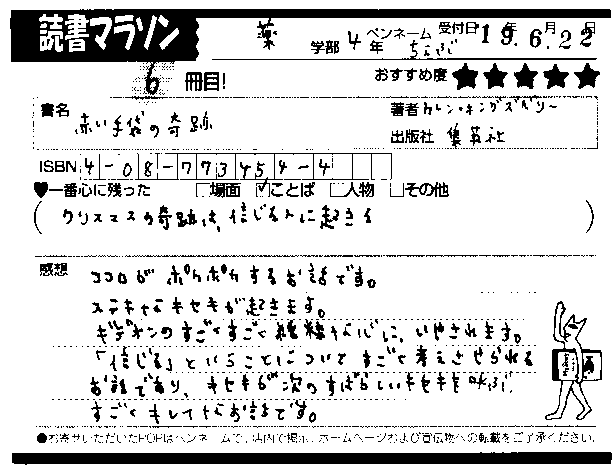 読書マラソン
薬 学部 4 年 ペンネーム ちえぶ 受付日 19年 6月 22日
6 冊目! おすすめ度 ★★★★★
書名 赤い手袋の奇跡 著者 カレン・キングズベリー
出版社 集英社
ISBN 4-08-773454-4
♥一番心に残った □場面 ☑ことば □人物 □その他
(クリスマスの奇跡は、信じる人に起きる)
感想 ココロがポカポカするお話です。
ステキなキセキが起きます。
ギデオンのすごくすごく純粋な心に、いやされます。
「信じる」ということについてすごく考えさせられる
お話であり、キセキが次のすばらしいキセキを呼ぶ、
すごくキレイなお話です。
●お寄せいただいたPOPはペンネームで、店内で掲示、ホームページおよび宣伝物への転載をご了承ください。